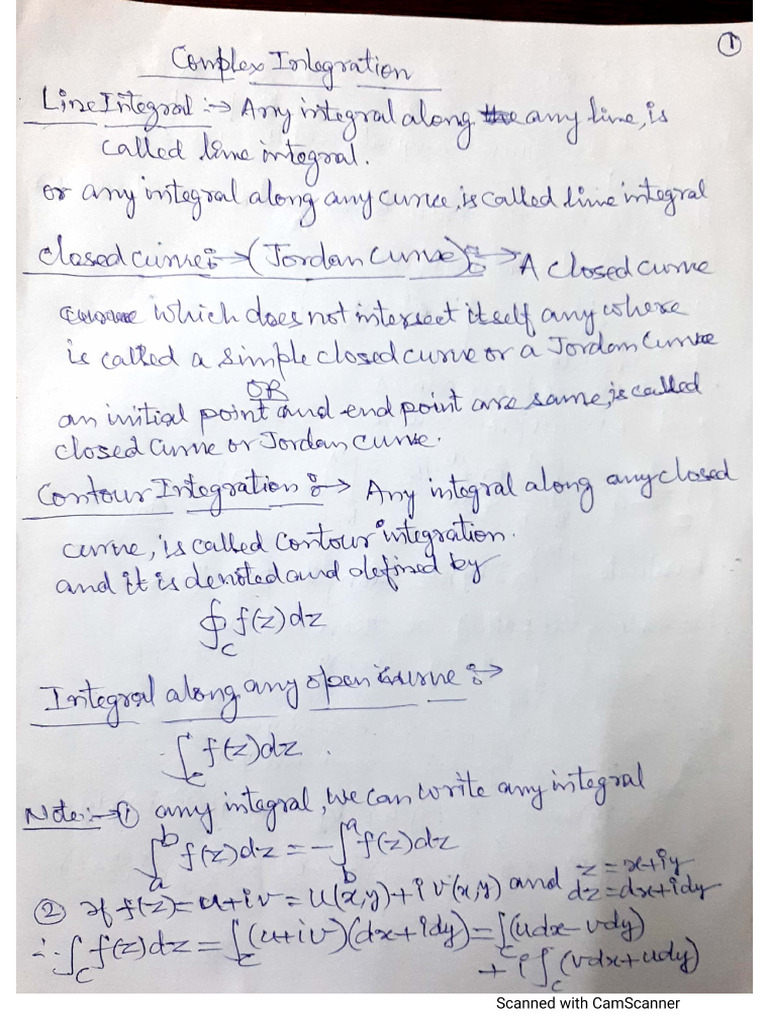 ①
Complex Integration
Line Integral :→ Any integral along the any line, is
called line integral.
or any integral along any curve, is called line integral
closed curve :→ (Jordan Curve) :→ A closed curve
curve which does not intersect itself any where
is called a simple closed curve or a Jordan Curve
OR
an initial point and end point are same, is called
closed curve or Jordan curve.
Contour Integration :→ Any integral along any closed
curve, is called Contour integration.
and it is denoted and defined by
∮_C f(z)dz
Integral along any open curve :→
∫_C f(z)dz .
Note:→ ① any integral, we can write any integral
∫_a^b f(z)dz = -∫_b^a f(z)dz
② If f(z) = u+iv = u(x,y)+i v(x,y) and z = x+iy
dz = dx+idy
∴ ∫_C f(z)dz = ∫_C (u+iv)(dx+idy) = ∫_C (udx - vdy)
+ i ∫_C (vdx+udy)
Scanned with CamScanner